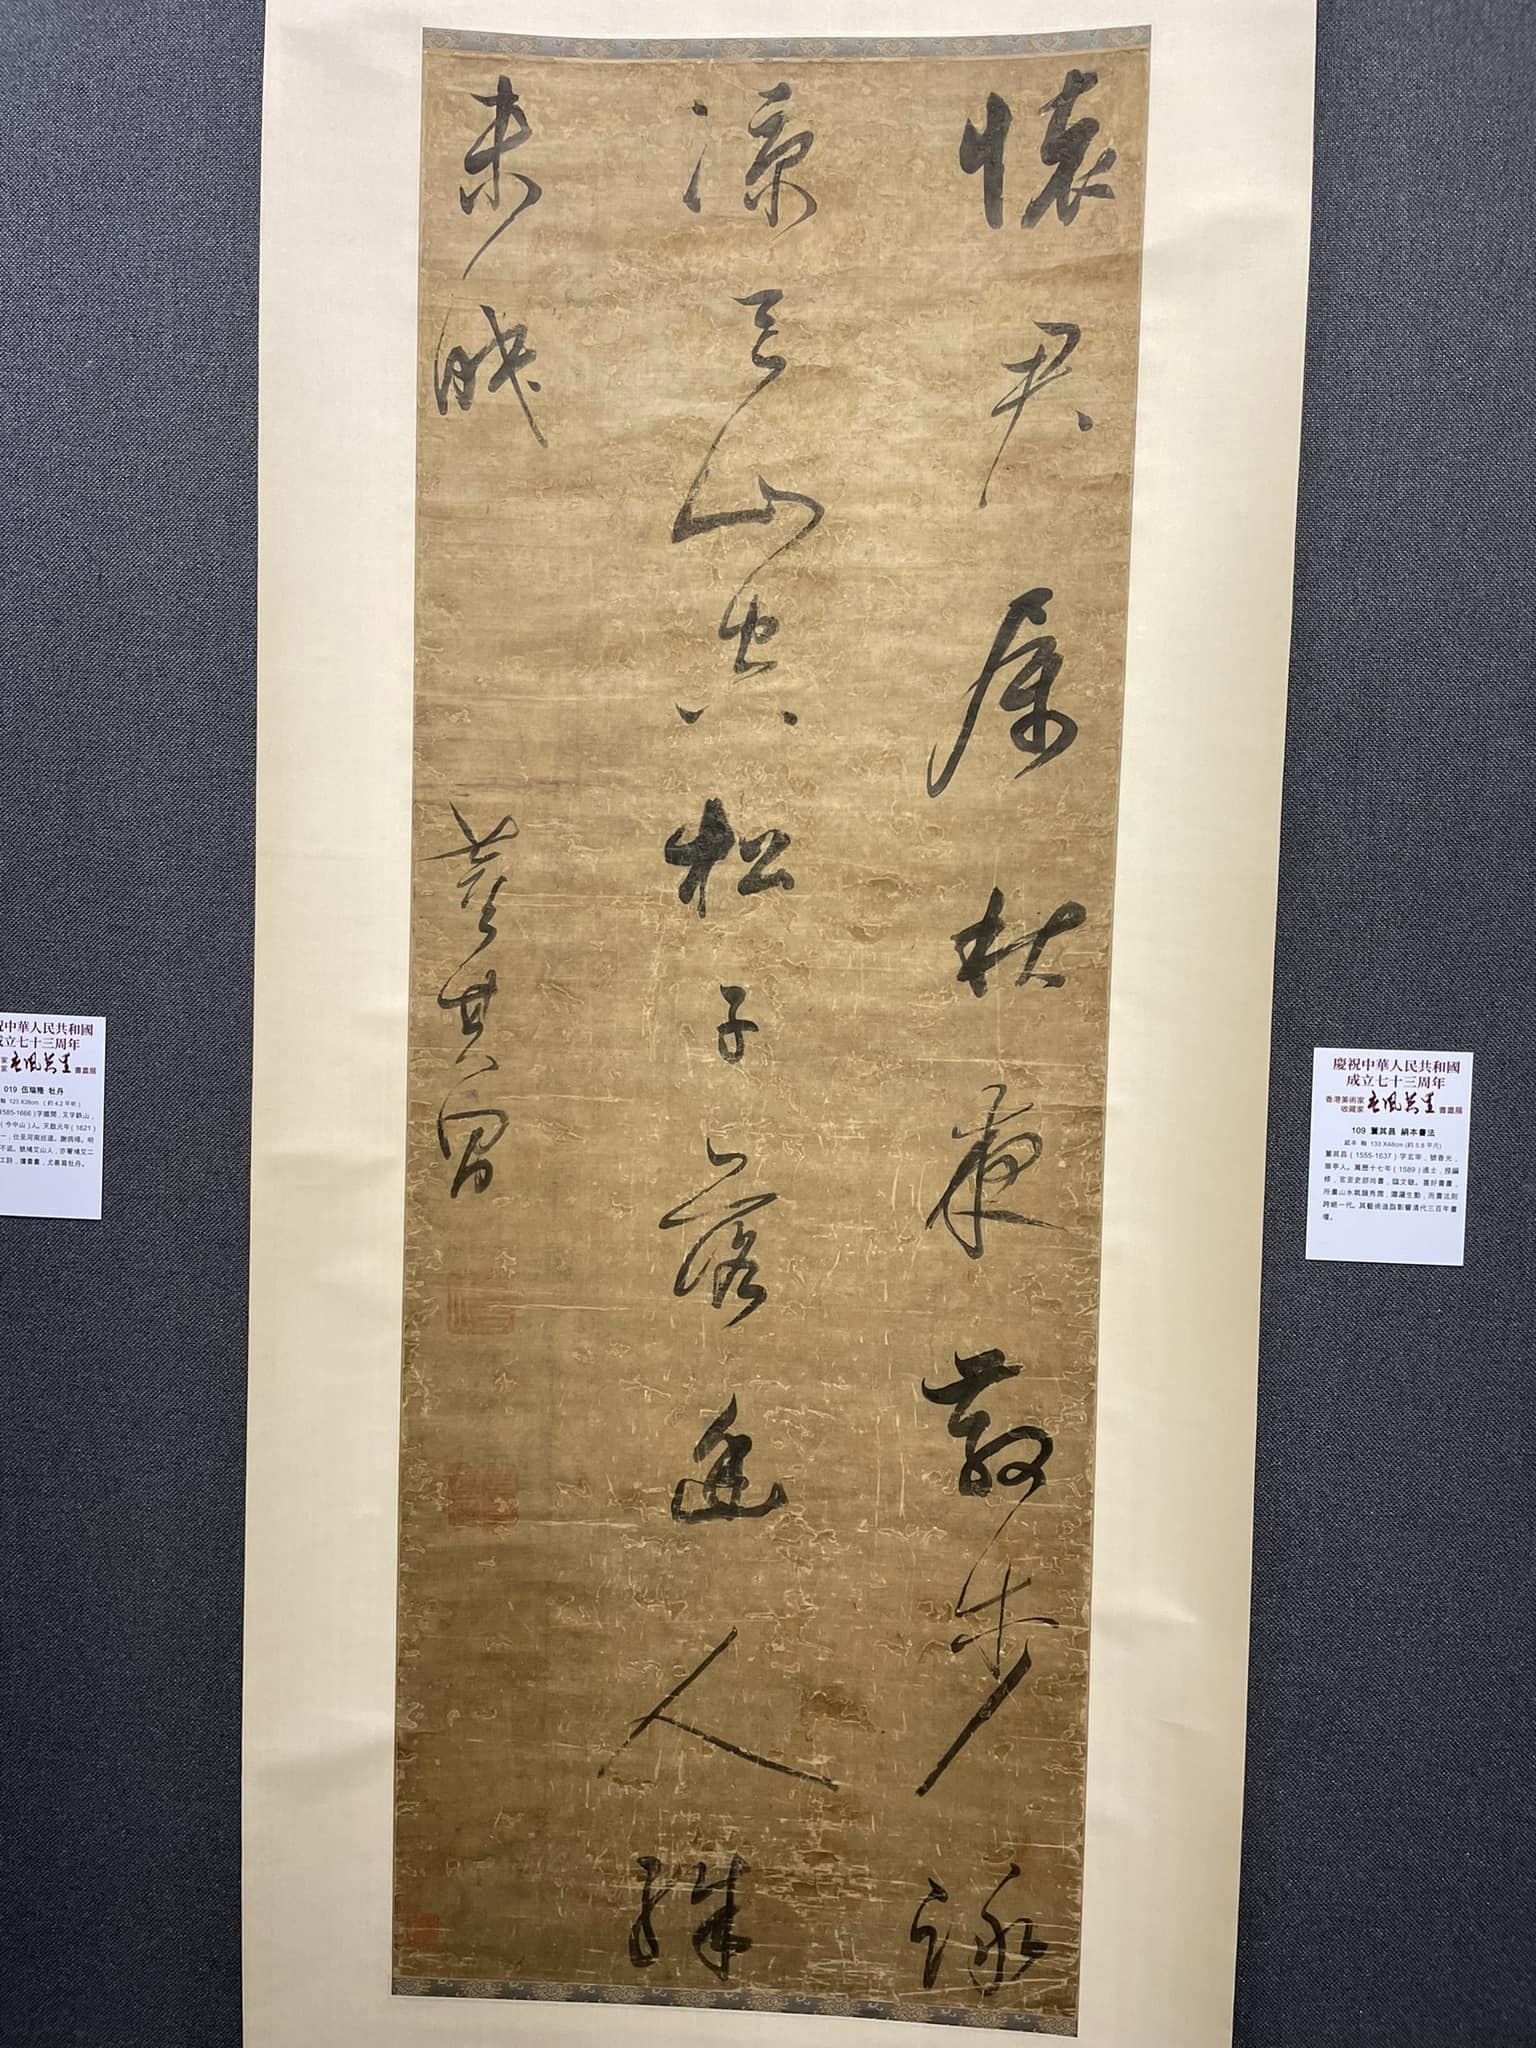 懷君属秋夜散步詠
涼天山空松子落幽人殊
未眠
董其昌
祝中華人民共和國
成立七十三周年
家
家
書畫展
019 伍瑞隆 牡丹
軸 123 X38cm (約 4.2 平呎)
1585-1666)字國開,又字鉄山,
(今中山)人。天啟元年(1621)
一,仕至河南巡道。謝病桶。明
不返。號鳩艾山人,亦署鳩艾二
工詩,擅書畫,尤善寫牡丹。
慶祝中華人民共和國
成立七十三周年
香港美術家
收藏家
書畫展
109 董其昌 絹本書法
紙本 軸 133 X48cm (約 5.8 平尺)
董其昌(1555-1637)字玄宰,號香光,
華亭人。萬歷十七年(1589)進士,授編
修,官至吏部尚書,諡文敏。喜好書畫,
所畫山水氣韻秀潤,瀟灑生動,而書法則
跨絕一代。其藝術造詣影響清代三百年畫
壇。